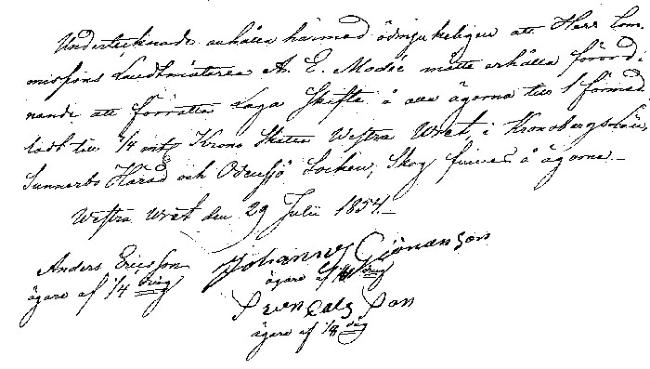 Undertecknade anhålla härmed ödmjukeligen att Herr Com-
missions Landtmätaren A. E. Modée måtte erhålla förord-
nande att förrätta Laga Skifte å alla ägorna till 1 förmed-
ladt till 1/4 mtg Krono Skatte Westra Wret, i Kronobergs Län,
Sunnerbo Härad och Odensjö Socken; Skog finnes å ägorna.
Westra Wret den 29 Julii 1854.
Anders Ericsson Johannes Göranson
ägare af 1/4 ägare af
Sven Carlsson
ägare af 1/8